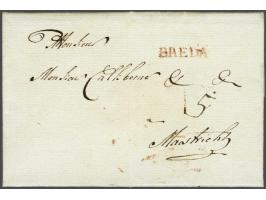 A Monsieur
BREDA
Monsieur Calkberne & &
5:
Mastricht